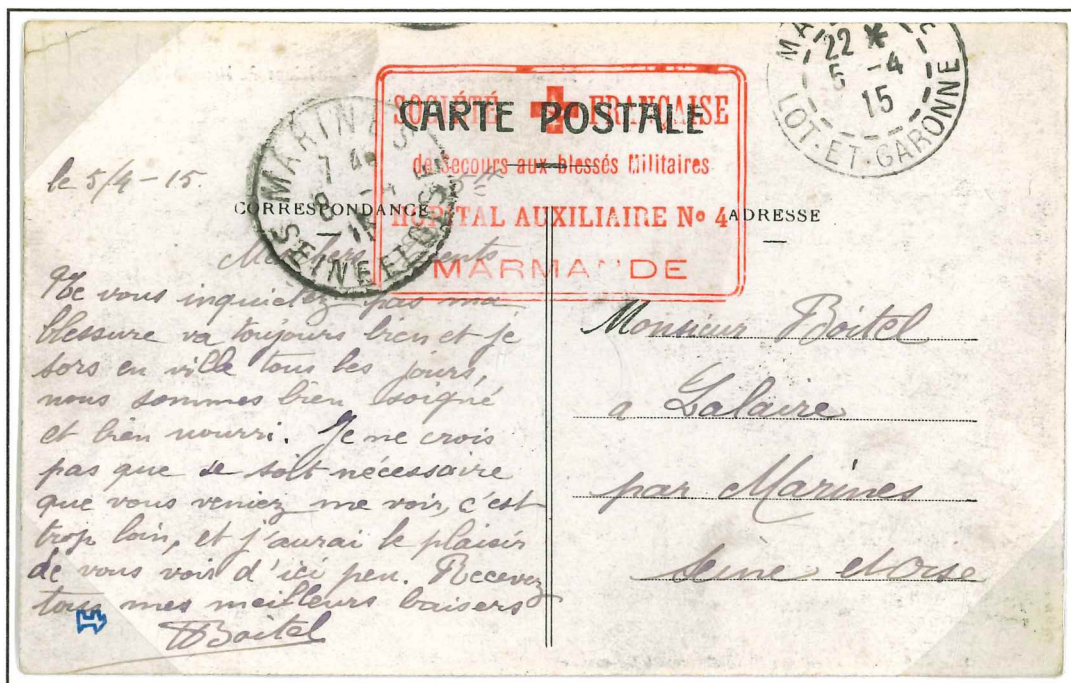 CARTE POSTALE
SOCIÉTÉ FRANÇAISE
de Secours aux blessés Militaires
HOPITAL AUXILIAIRE No 4
MARMANDE
22 *
5 -4
15
LOT-ET-GARONNE
MARINES
SEINE ET OISE
CORRESPONDANCE
ADRESSE
le 5/4-15.
Mes chers parents
Ne vous inquietez pas ma
blessure va toujours bien et je
sors en ville tous les jours,
nous sommes bien soigné
et bien nourri. Je ne crois
pas que se soit nécessaire
que vous veniez me voir, c'est
trop loin, et j'aurai le plaisir
de vous voir d'ici peu. Recevez
tous mes meilleurs baisers
Boitel
Monsieur Boitel
a
par Marines
Seine et Oise